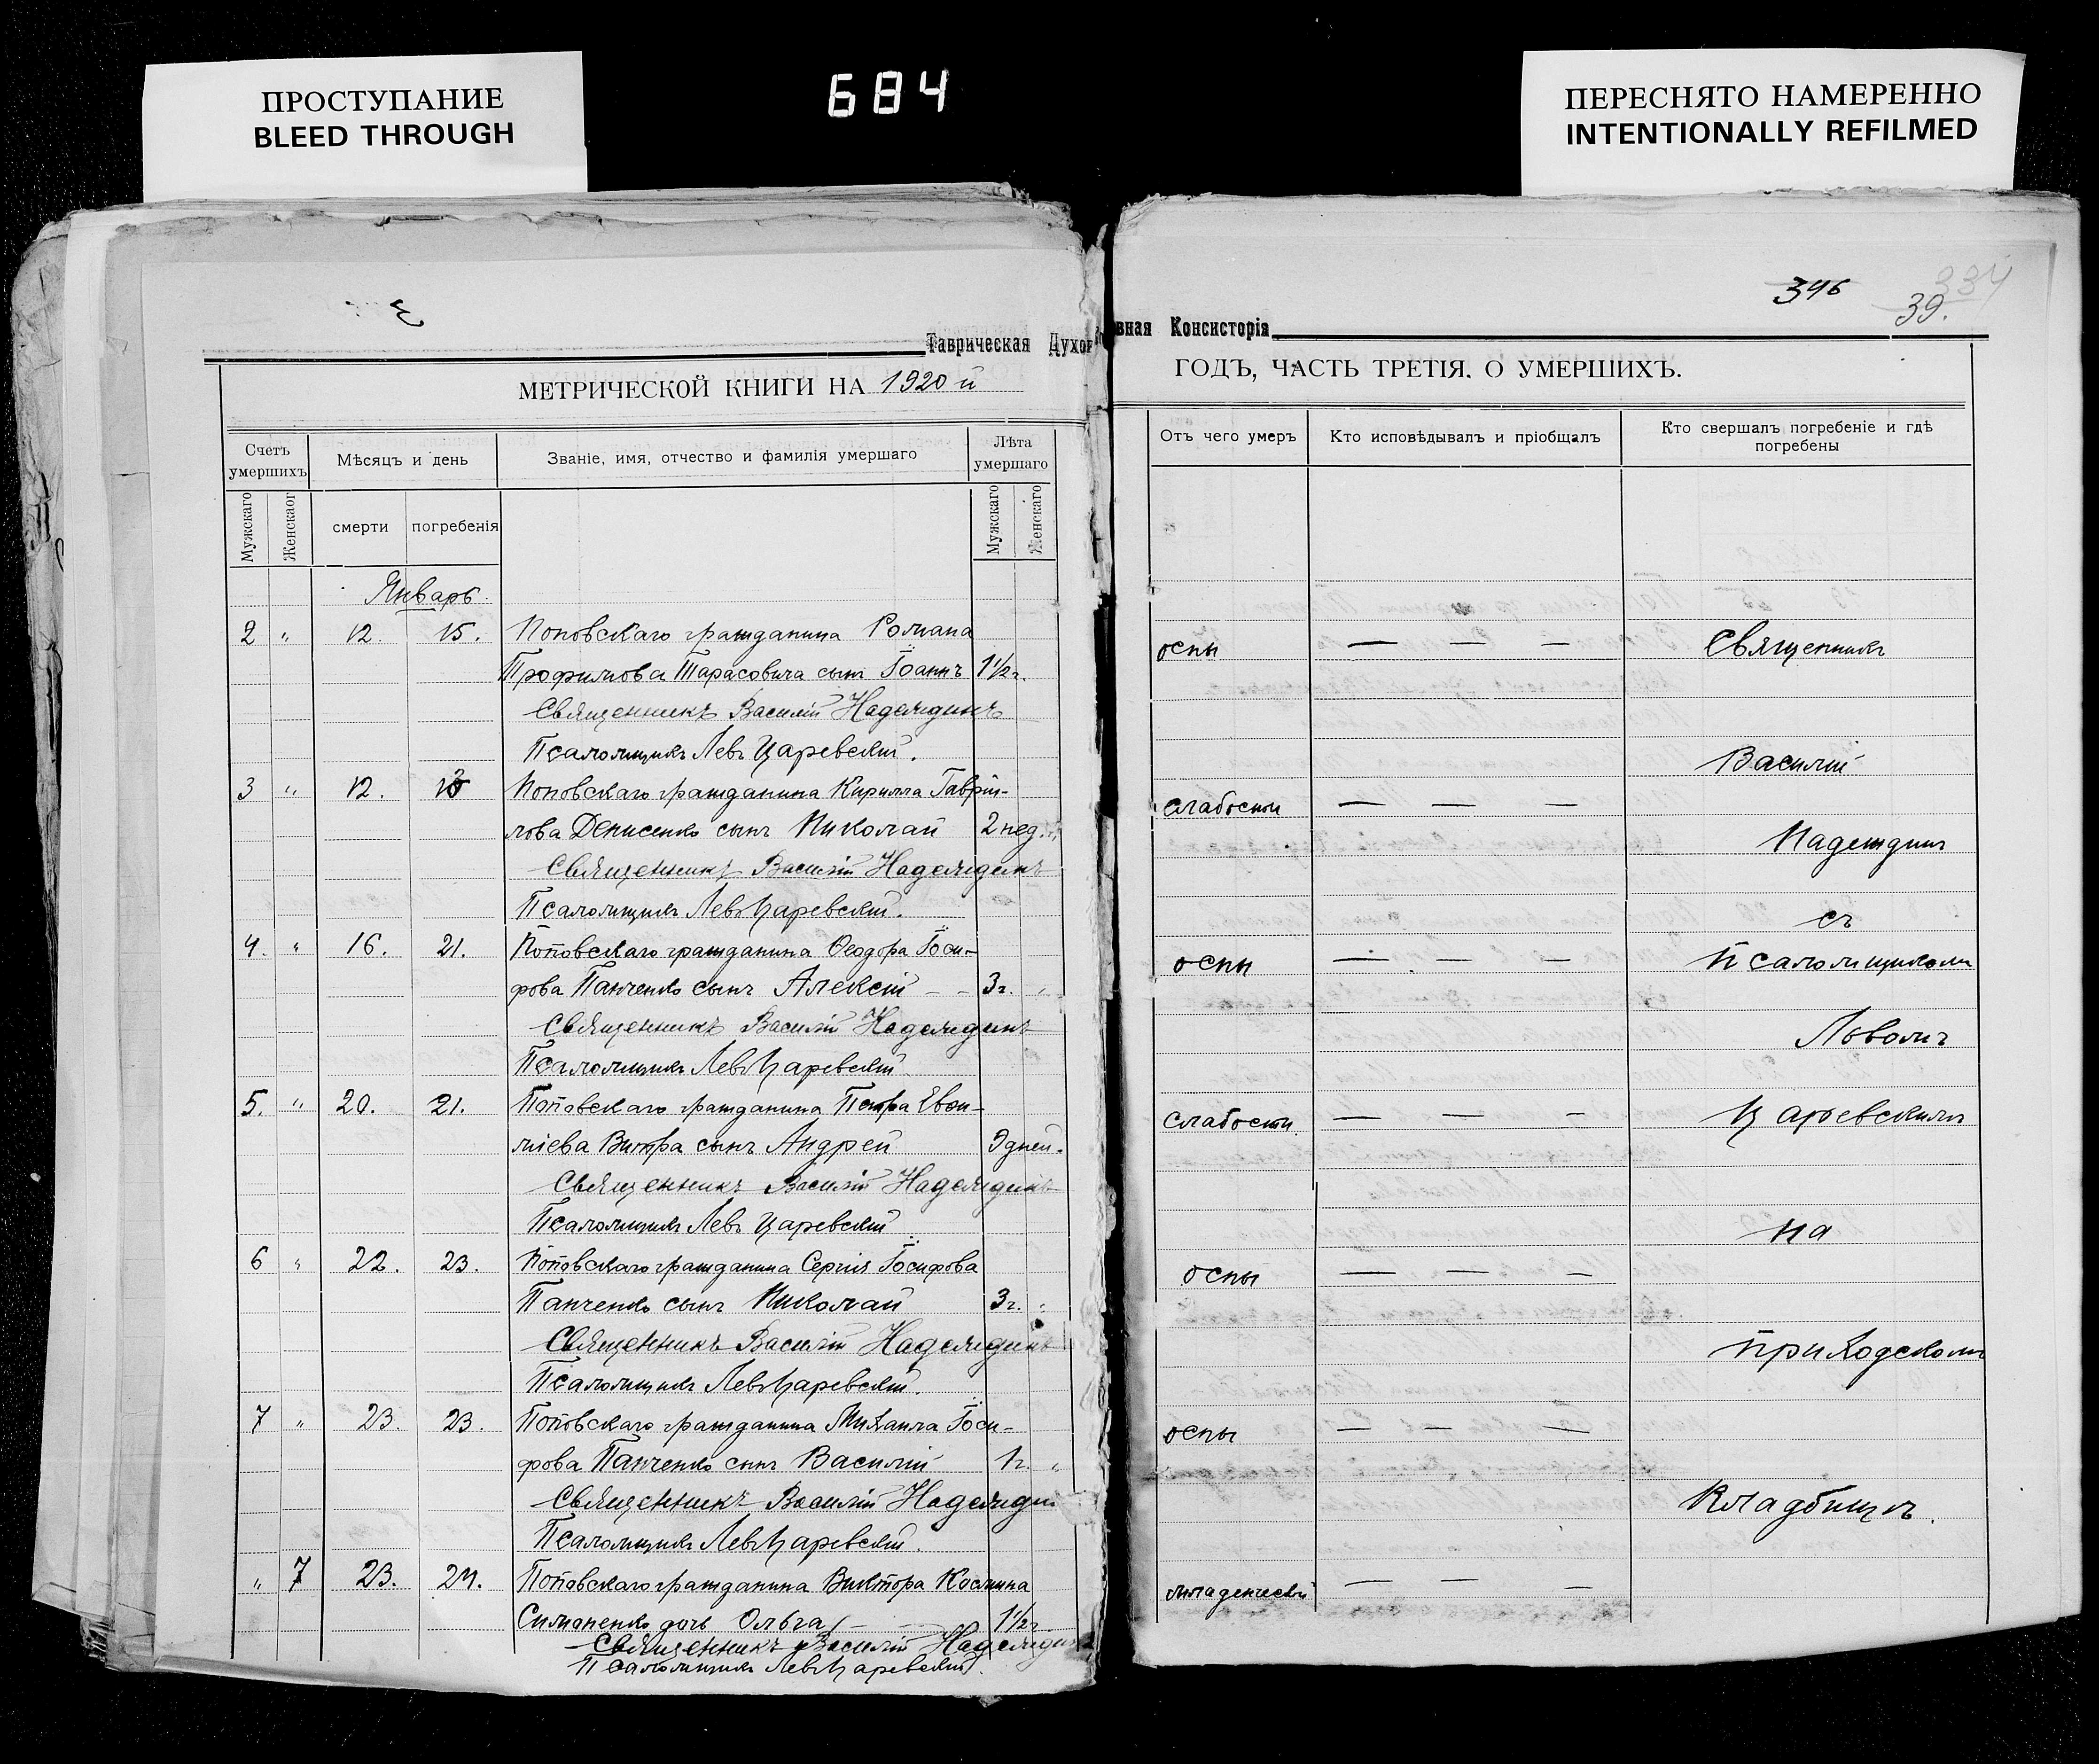 ПРОСТУПАНИЕ
BLEED THROUGH
684
ПЕРЕСНЯТО НАМЕРЕННО
INTENTIONALLY REFILMED
Таврическая Духов
МЕТРИЧЕСКОЙ КНИГИ НА 1920 й
Счетъ умершихъ
Мѣсяцъ и день
Званіе, имя, отчество и фамилія умершаго
Лѣта умершаго
Мужскаго
Женскаог
смерти
погребенія
Мужскаго
Женскаго
Январь
2 " 12. 15. Поповскаго гражданина Романа
Трофимова Тарасовича сынъ Іоаннъ 1½ г.
Священникъ Василій Надеждинъ
Псаломщикъ Левъ Царевскій.
3 " 12. 13 Поповскаго гражданина Кирилла Гаврій-
лова Денисенко сынъ Николай 2 нед.
Священникъ Василій Надеждинъ
Псаломщикъ Левъ Царевскій.
4. " 16. 21. Поповскаго гражданина Ѳеодора Іоси-
фова Панченко сынъ Алексій - - 3 г.
Священникъ Василій Надеждинъ
Псаломщикъ Левъ Царевскій
5. " 20. 21. Поповскаго гражданина Петра
сынъ Андрей 9 дней.
Священникъ Василій Надеждинъ
Псаломщикъ Левъ Царевскій
6 " 22. 23. Поповскаго гражданина Сергія Іосифова
Панченко сынъ Николай 3 г.
Священникъ Василій Надеждинъ
Псаломщикъ Левъ Царевскій.
7 " 23. 23. Поповскаго гражданина Михаила Іоси-
фова Панченко сынъ Василій 1 г. "
Священникъ Василій Надежди
Псаломщикъ Левъ Царевскій.
" 7 23. 24. Поповскаго гражданина Виктора Космина
Симоненко дочь Ольга - - 1½ г.
Священникъ Василій Надежди
Псаломщикъ Левъ Царевскій.
346
334
39.
вная Консисторія
ГОДЪ, ЧАСТЬ ТРЕТІЯ. О УМЕРШИХЪ.
Отъ чего умеръ
Кто исповѣдывалъ и пріобщалъ
Кто свершалъ погребеніе и гдѣ погребены
оспы — — — Священникъ
Василій
слабости — — —
Надеждинъ
съ
оспы — — — Псаломщикомъ
Львомъ
слабости — — — Царевскимъ
на
оспы — — —
приходскомъ
оспы — — —
Кладбищѣ.
младенческ — — —